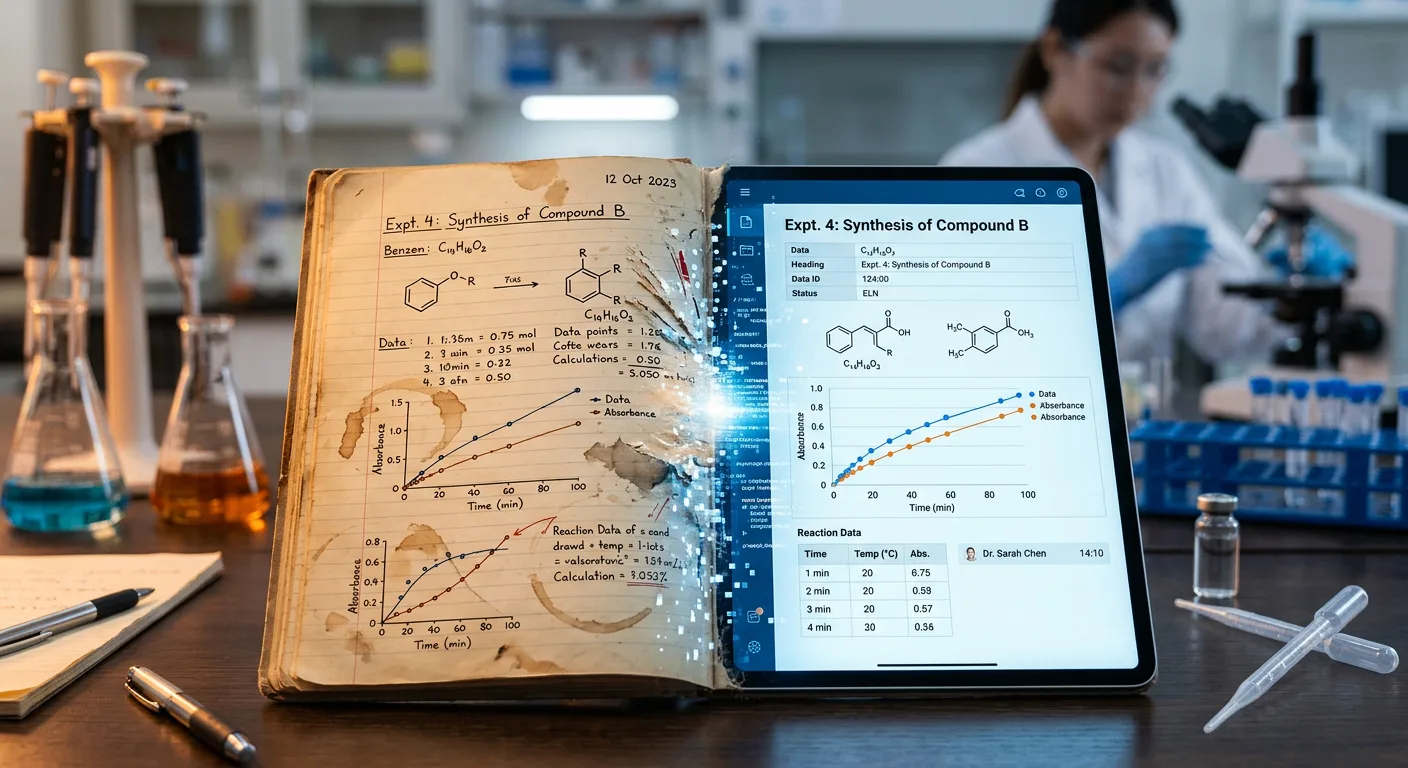 12 Oct 2023
Expt. 4: Synthesis of Compound B
Benzen: C₁₉H₁₆O₂
O
R
R
R
R
C₁₉H₁₆O₃
Data:
2. 3 min = 0.35 mol
3. 10min = 0.22
4. 3 afn = 0.50
Data points = 1.2
Cofte wears = 1.7
Calculations = 0.50
= 5.050
1,5
1.0
0.5
0
Absorbance
0 20 40 60 80 100
Time (min)
Data
Absorbance
0.8
0.6
0.4
0.2
0
Absorbance
0 20 40 60 80 100
Time (min)
Reaction Data of s cand
drawd = temp = 1-lots
Calculation = 3.053%
Expt. 4: Synthesis of Compound B
Data
Heading Expt. 4: Synthesis of Compound B
Data ID 124:00
Status ELN
O
OH
R
H₃C
H₃C
O
OH₃
1.0
0.8
0.6
0.4
0.2
0
Absorbance
0 20 40 60 80 100
Time (min)
Data
Abserbance
Absorbance
Reaction Data
Time Temp (°C) Abs.
1 min 20 6.75
2 min 20 0.59
3 min 20 0.57
4 min 30 0.36
Dr. Sarah Chen 14:10